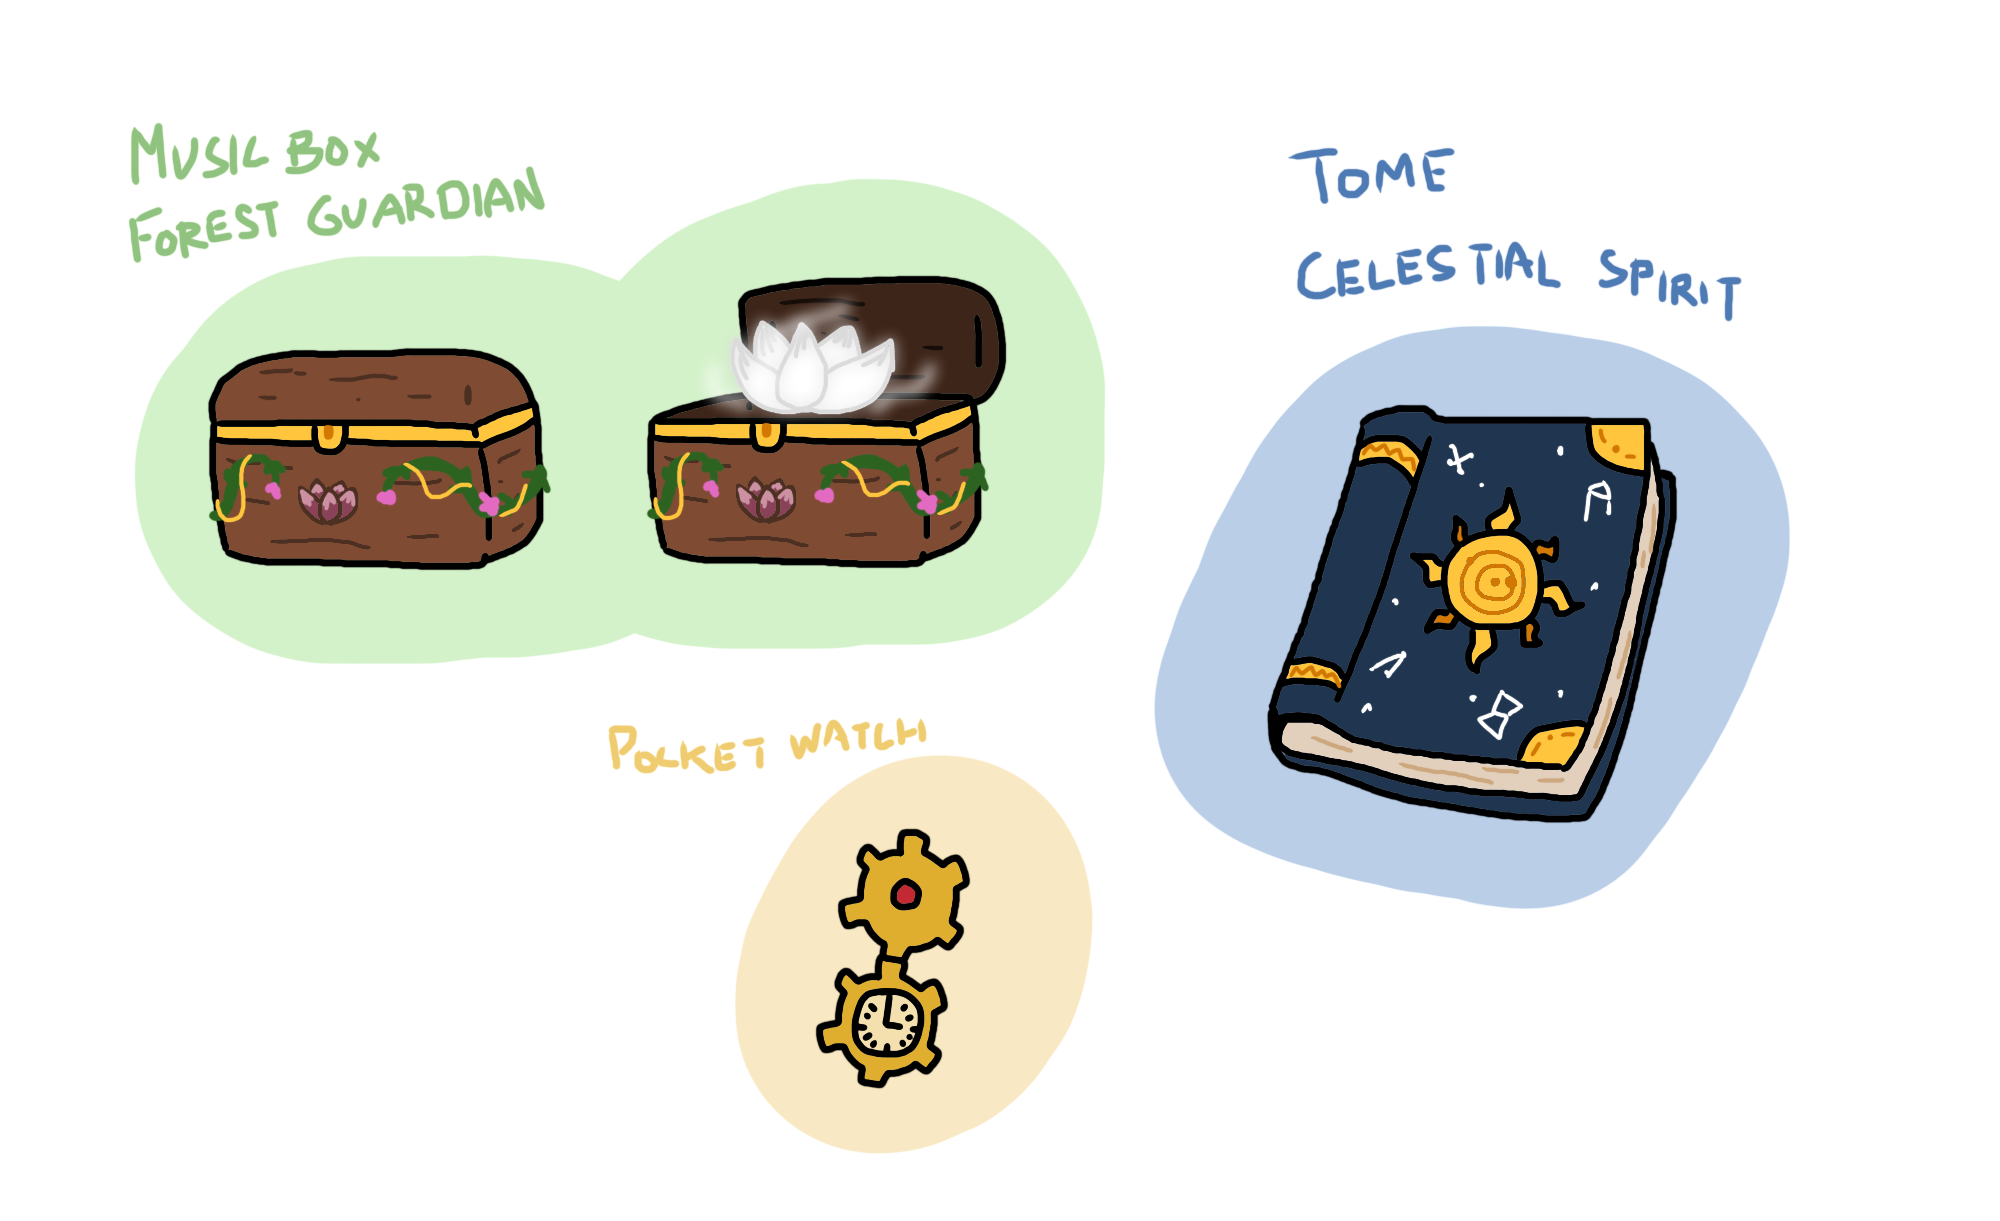 MUSIC BOX
FOREST GUARDIAN
TOME
CELESTIAL SPIRIT
POCKET WATCH